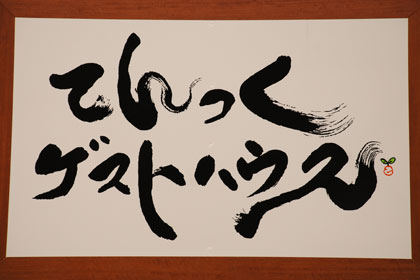 てんっく
ゲストハウス